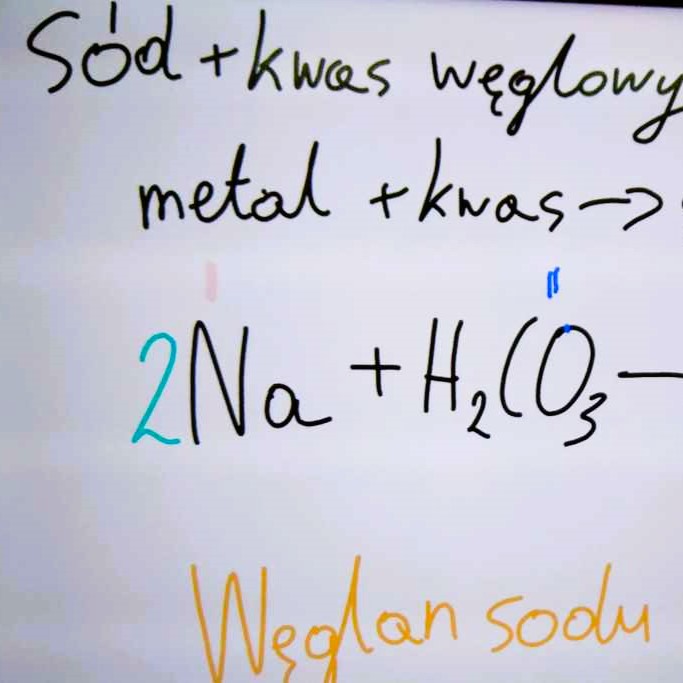 Sód + kwas węglowy
metal + kwas →
I II
2Na + H₂CO₃ —
Węglan sodu